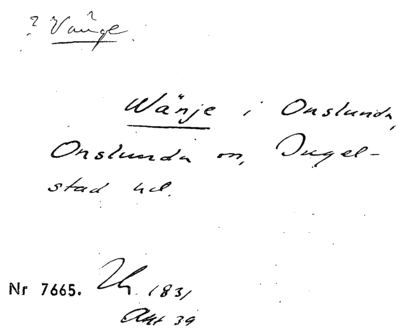 ? Vånge
Wänje i Onslunda,
Onslunda sn, Ingel-
stad hd.
Nr 7665. Lh 1831
Akt 39